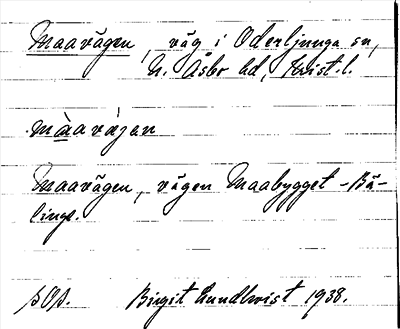 Maavägen, väg i Oderljunga sn,
N. Åsbo hd, Krist. l.
màavàjan
Maavägen, vägen Maabygget - Bä-
linge.
Birgit Lundkvist 1938.